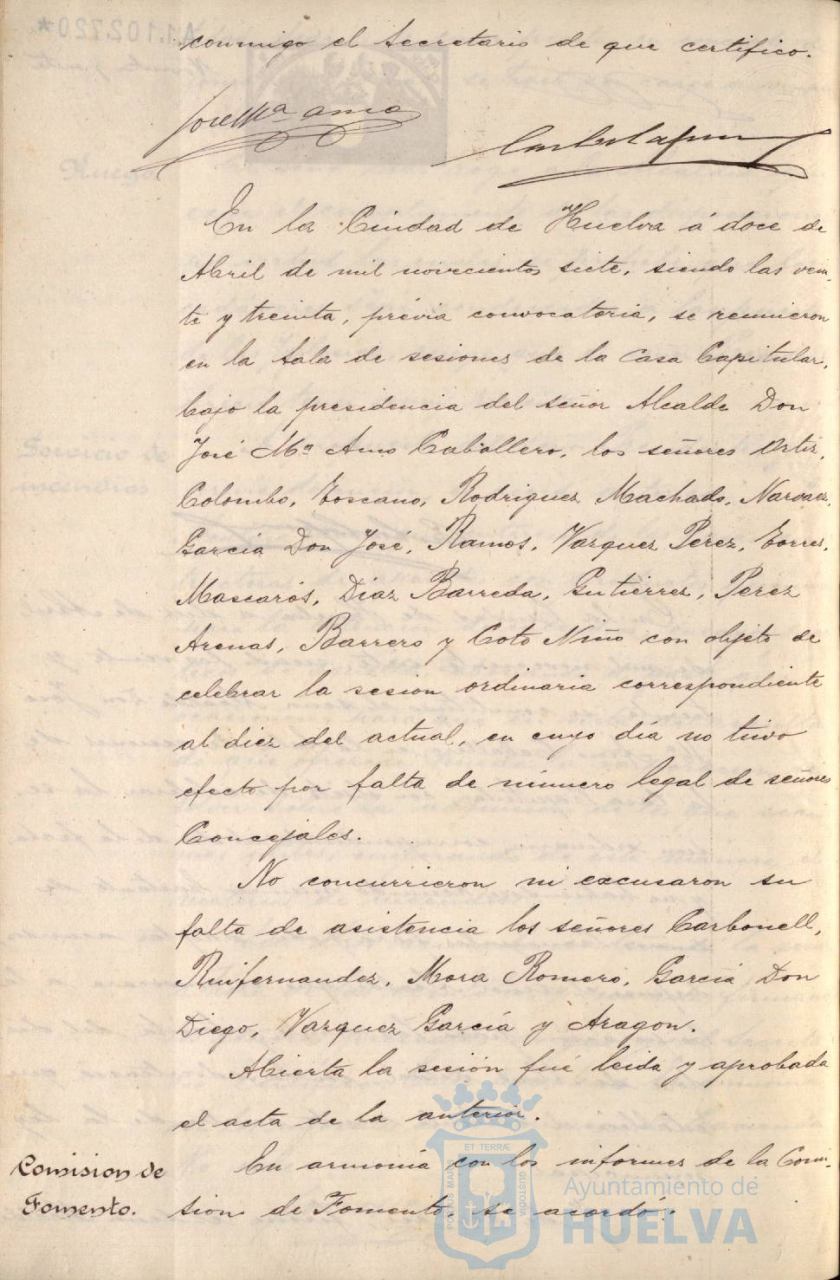 conmigo el Secretario de que certifico.
José Mª Amo
En la Ciudad de Huelva á doce de
Abril de mil novecientos siete, siendo las vein-
te y treinta, prévia convocatoria, se reunieron
en la Sala de sesiones de la Casa Capitular,
bajo la presidencia del señor Alcalde Don
José Mª Amo Caballero, los señores Ortiz,
Colombo, Toscano, Rodriguez Machado, Narvaez,
García Don José, Ramos, Vazquez Perez, Torres,
Mascarós, Diaz Barreda, Gutierrez, Perez
Arenas, Barrero y Coto Niño con objeto de
celebrar la sesion ordinaria correspondiente
al diez del actual, en cuyo día no tuvo
efecto por falta de número legal de señores
Concejales.
No concurrieron ni excusaron su
falta de asistencia los señores Carbonell,
Ruifernandez, Mora Romero, García Don
Diego, Vazquez García y Aragon.
Abierta la sesión fué leida y aprobada
el acta de la anterior.
Comision de
Fomento.
En armonía con los informes de la Comi-
sion de Fomento, se acordó:
PORTUS MARIS
ET TERRÆ
CUSTODIA
Ayuntamiento de
HUELVA